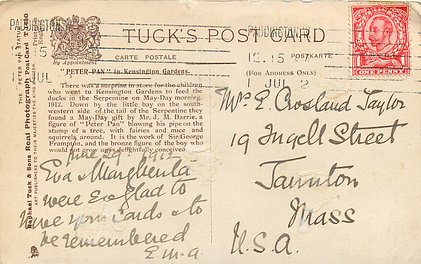 PADDINGTON
PADDINGTON
TUCK'S POSTCARD
By Appointment
CARTE POSTALE
POSTKARTE
(FOR ADDRESS ONLY)
12.15
JUL 2
ONE PENNY
"PETER PAN" in Kensington Gardens.
There was a surprise in store for the children
who went to Kensington Gardens to feed the
ducks in the Serpentine on May-Day morning,
1912. Down by the little bay on the south
western side of the tail of the Serpentine they
found a May-Day gift by Mr. J. M. Barrie, a
figure of "Peter Pan" blowing his pipe on the
stump of a tree, with fairies and mice and
squirrels around. It is the work of Sir George
Frampton, and the bronze figure of the boy who
would not grow up is delightfully conceived
Raphael Tuck & Sons Real Photograph Postcard
ART PUBLISHERS TO THEIR MAJESTIES THE KING AND QUEEN
June 29. 1912
Eva & Margherita
were so glad to
have your cards & to
be remembered
E. M. A
Mrs E. Crosland Taylor
19 Ingell Street
Taunton
Mass
U.S.A.